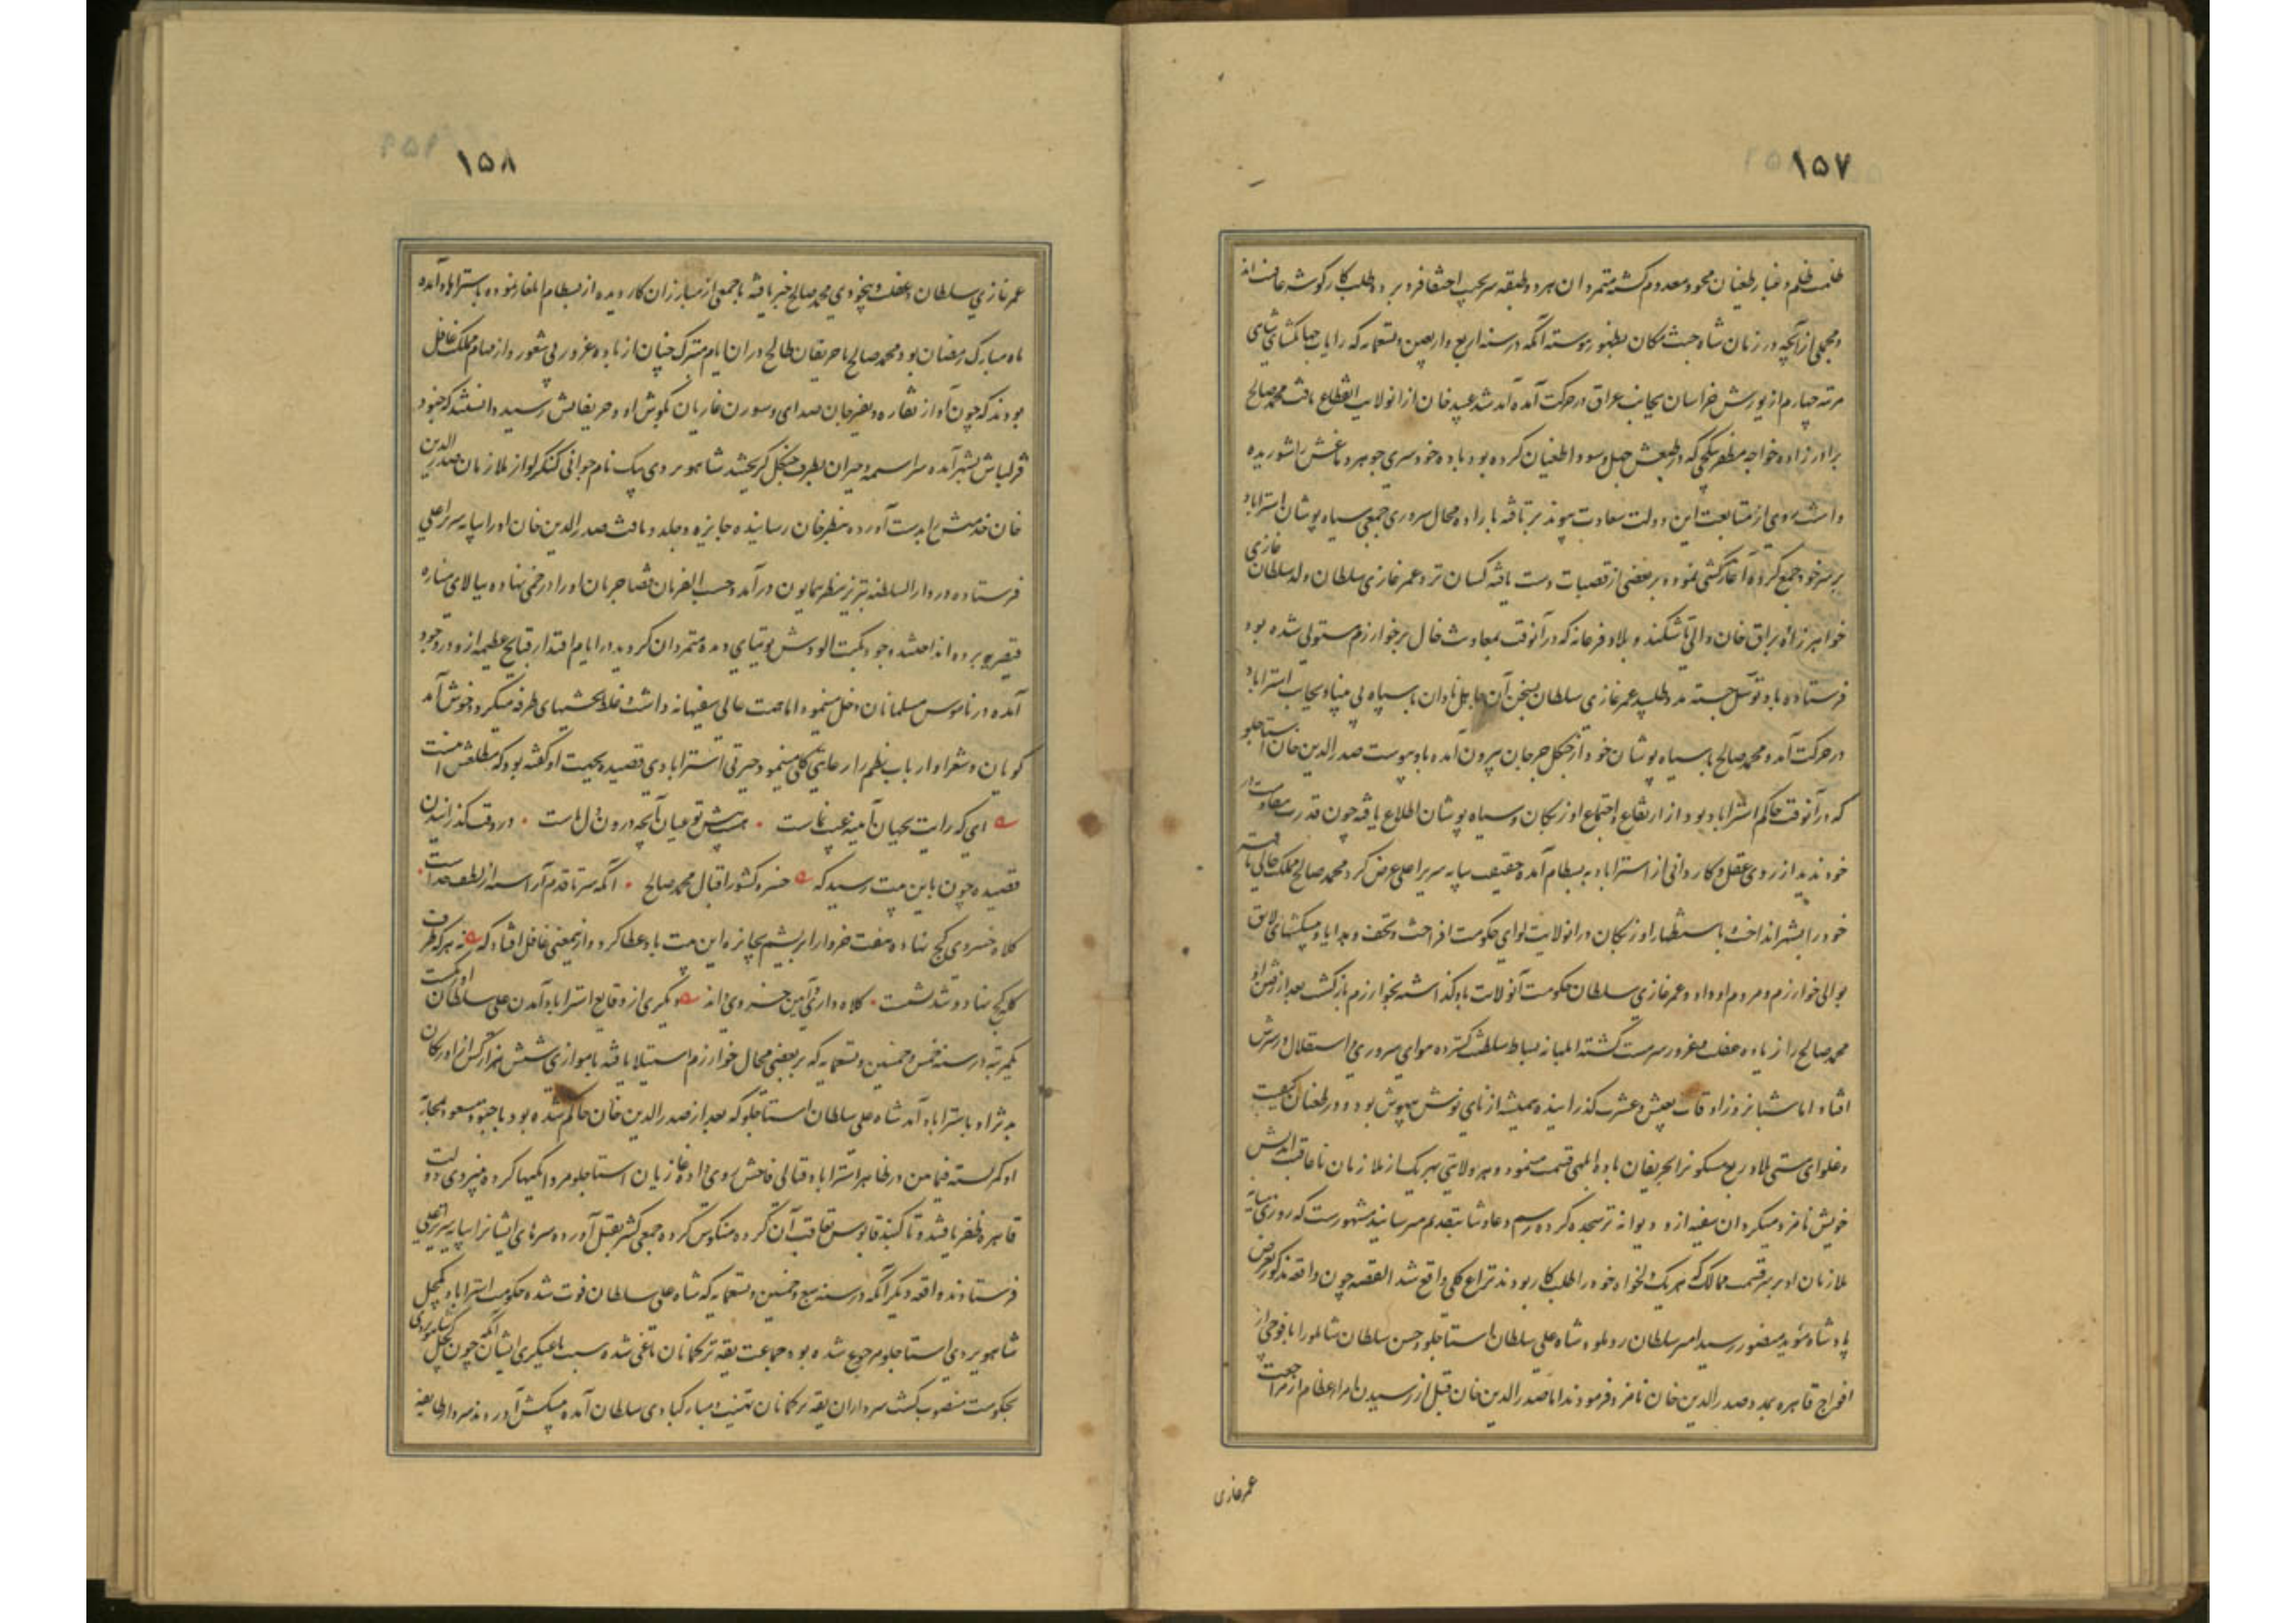 ۱۵۷
ظلمت ظلم و غبار طغیان محو و معدوم گشته متمردان هر دو طبقه سر بجیب اختفا فرو برده طلب کار گوشه عافیت‌اند
و مجملی از آنچه در زمان شاه جنت مکان بظهور پیوسته آنکه در سنه اربع و اربعین و تسعمایه که رایات جهانگشای شاهی
مرتبه چهارم از یورش خراسان بجانب عراق در حرکت آمده آمد شد عبید خان از آن ولایت انقطاع یافت محمد صالح
برادرزاده خواجه مظفر بتکچی که در طبعش جهل و سودا طغیان کرده بود باده خودسری جوهر دماغش را شوریده
داشت روی از متابعت این دولت سعادت پیوند بر تافته با راده محال سروری جمعی سیاه پوشان استراباد
بر سر خود جمع کرده آغاز سرکشی نمود و بر بعضی از قصبات دست یافته کسان نزد عمر غازی سلطان ولد سلطان غازی
خواهرزاده براق خان والی تاشکند و بلاد فرغانه که در آنوقت بمعاونت خال بر خوارزم مستولی شده بود
فرستاده باو توسل جسته مدد طلبید عمر غازی سلطان بسخن آن جاهل نادان با سپاه بی پناه بجانب استراباد
در حرکت آمد و محمد صالح با سیاه پوشان خود از جنگل جرجان بیرون آمده باو پیوست صدرالدین خان استاجلو
که در آنوقت حاکم استراباد بود از ارتفاع و اجتماع اوزبکان و سیاه پوشان اطلاع یافته چون قدرت مقاومت در
خود ندید از روی عقل و کاردانی از استراباد به بسطام آمده حقیقت بپایه سریر اعلی عرض کرد محمد صالح ملک خالی یافته
خود را بشهر انداخت باستظهار اوزبکان در آن ولایت لوای حکومت افراخت و تحف و هدایا و پیشکشهای لایق
بوالی خوارزم و مردم او داد و عمر غازی سلطان حکومت آنولایت باو گذاشته بخوارزم بازگشت بعد از رفتن او
محمد صالح را از باده غفلت مغرور سرمست گشته ابلهانه بساط سلطنت گسترده هوای سروری و استقلال در سرش
افتاد اما شبانروز اوقات بعیش و عشرت گذرانیده همیشه از نای نوش بیهوش بود و در طغیان کیفیت
و غلوای مستی بلاد ربع مسکون را بحریفان باده ابلهی قسمت مینمود و هر ولایتی بهر یک از ملازمان ناعاقبت اندیش
خویش نامزد میکرد آن سفیه از و دیوانه تر سجده کرده رسم دعا و ثنا بتقدیم میرسانید مشهورست که روزی میانه
ملازمان او بر سر قسمت ممالک که هر یک دلخواه خود را طلب کار بودند نزاع کلی واقع شد القصه چون واقعه مذکور بعرض
پادشاه مؤید منصور رسید امیر سلطان روملو و شاه علی سلطان استاجلو و حسن سلطان شاملو را با فوجی از
افواج قاهره بمدد صدرالدین خان نامزد فرمودند اما صدرالدین خان قبل از رسیدن امراء عظام از مراجعت
عمر غازی
۱۵۸
عمر غازی سلطان و غفلت و بیخودی محمد صالح خبر یافته با جمعی از مبارزان کار دیده از بسطام ایلغار نموده باستراباد آمده
ماه مبارک رمضان بود محمد صالح با حریفان طالح در آن ایام متبرک چنان از باده غرور بی شعور و از صیام ملک غافل
بودند که چون آواز نقاره و نفیر جان صدای و سورن غازیان بگوش او و حریفانش رسید دانستند که جنود
قزلباش بشهر آمده سراسیمه و حیران بطرف جنگل گریختند شاهویردی بیک نام جوانی کنگرلو از ملازمان صدرالدین
خان خدمتش را بدست آورده بنظر خان رسانیده جایزه و جلدو یافت صدرالدین خان او را بپایه سریر اعلی
فرستاده در دارالسلطنه تبریز بنظر همایون در آمد و حسب الفرمان قضا جریان او را در خمی نهاده ببالای مناره
قیصریه برده انداختند وجود نکبت آلودش توتیای دیده متمردان گردید در ایام اقتدار قبایح عظیمه از و در وجود
آمده در ناموس مسلمانان دخل مینمود اما همت عالی سفیهانه داشت و غلط بخشیهای طرفه میکرد و خوش آمد
گویان و شعرا و ارباب نظم را رعایتی کلی مینمود حیرتی استرابادی قصیده بجهت او گفته بود که مطلعش اینست
ای که رایت بجهان آینه غیب نماست . هست پیش تو عیان آنچه درون دل ماست . در وقت گذرانیدن
قصیده چون باین بیت رسید که خسرو کشور اقبال محمد صالح . آنکه سر تا قدم آراسته از لطف خداست .
کلاه خسروی کج نهاده هفت خروار ابریشم بجایزه این بیت باو عطا کرد و از اینمعنی غافل افتاد که نه هر که طرف
کله کج نهاد و تند نشست . کلاه داری و آیین خسروی داند دیگری از وقایع استراباد آمدن علی سلطان اوزبکست
یکمرتبه در سنه خمس و خمسین و تسعمایه که بر بعضی محال خوارزم استیلا یافته با موازی شش هزار کس از اوزبکان
بد نژاد باستراباد آمد شاه علی سلطان استاجلو که بعد از صدرالدین خان حاکم شده بود با جنود مسعود بمحاربه
او کمر بسته فیمابین در ظاهر استراباد قتالی فاحش روی داد و غازیان استاجلو مردانگیها کرده بنیروی دولت
قاهره ظفر یافتند و تا گنبد قابوس تعاقب آن گروه منکوس کرده جمعی کثیر بقتل آورده سرهای ایشانرا بپایه سریر اعلی
فرستادند واقعه دیگر آنکه در سنه سبع و خمسین و تسعمایه که شاه علی سلطان فوت شده حکومت استراباد بکچل
شاهویردی استاجلو مرجوع شده بود جماعت یقه ترکمانان یاغی شده سبب یاغیگری ایشان آنکه چون کچل شاهویردی
بحکومت منصوب گشت سرداران یقه ترکمانان بتهنیت و مبارکبادی سلطان آمده پیشکش آوردند سردار طایفه